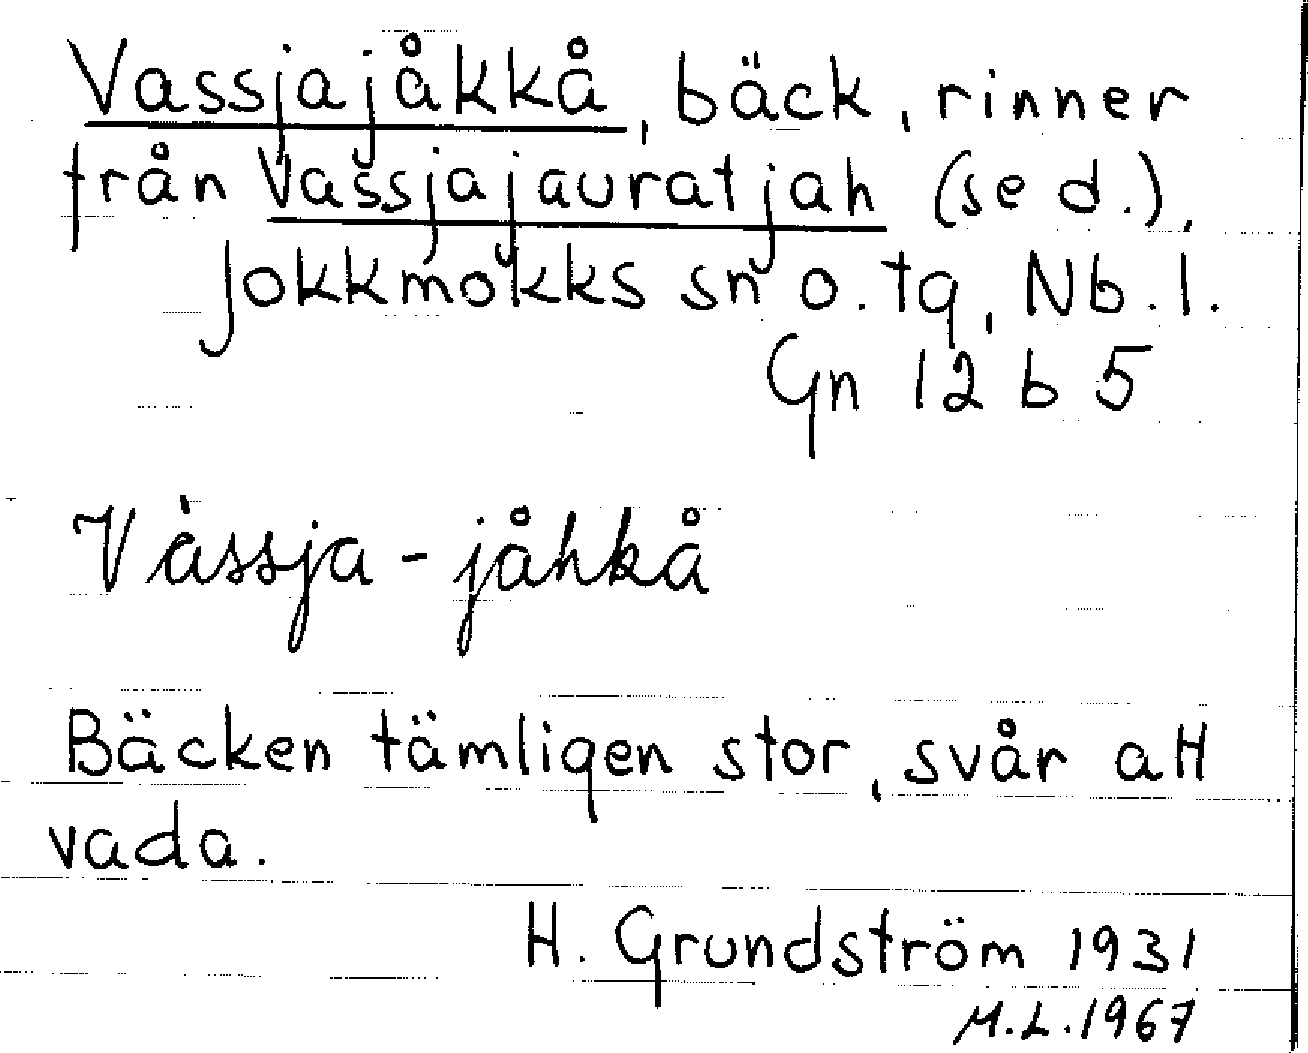 Vassjajåkkå, bäck, rinner
från Vassjajauratjah (se d.),
Jokkmokks sn o. tg, Nb. l.
Gn 12 b 5
Vàssja-jåhkå
Bäcken tämligen stor, svår att
vada.
H. Grundström 1931
M.L. 1967